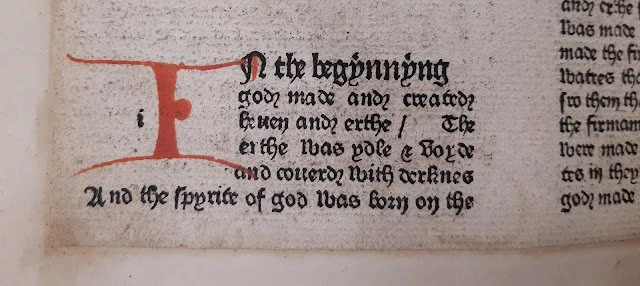 IN the begynnyng
god made and created
i
heuen and erthe / The
erthe was ydle & voyde
and couerd with derknes
And the spyrite of god was born on the
and erthe
was made
made the fir
watres tha
fro them th
the firmam
were made
tes in they
god made